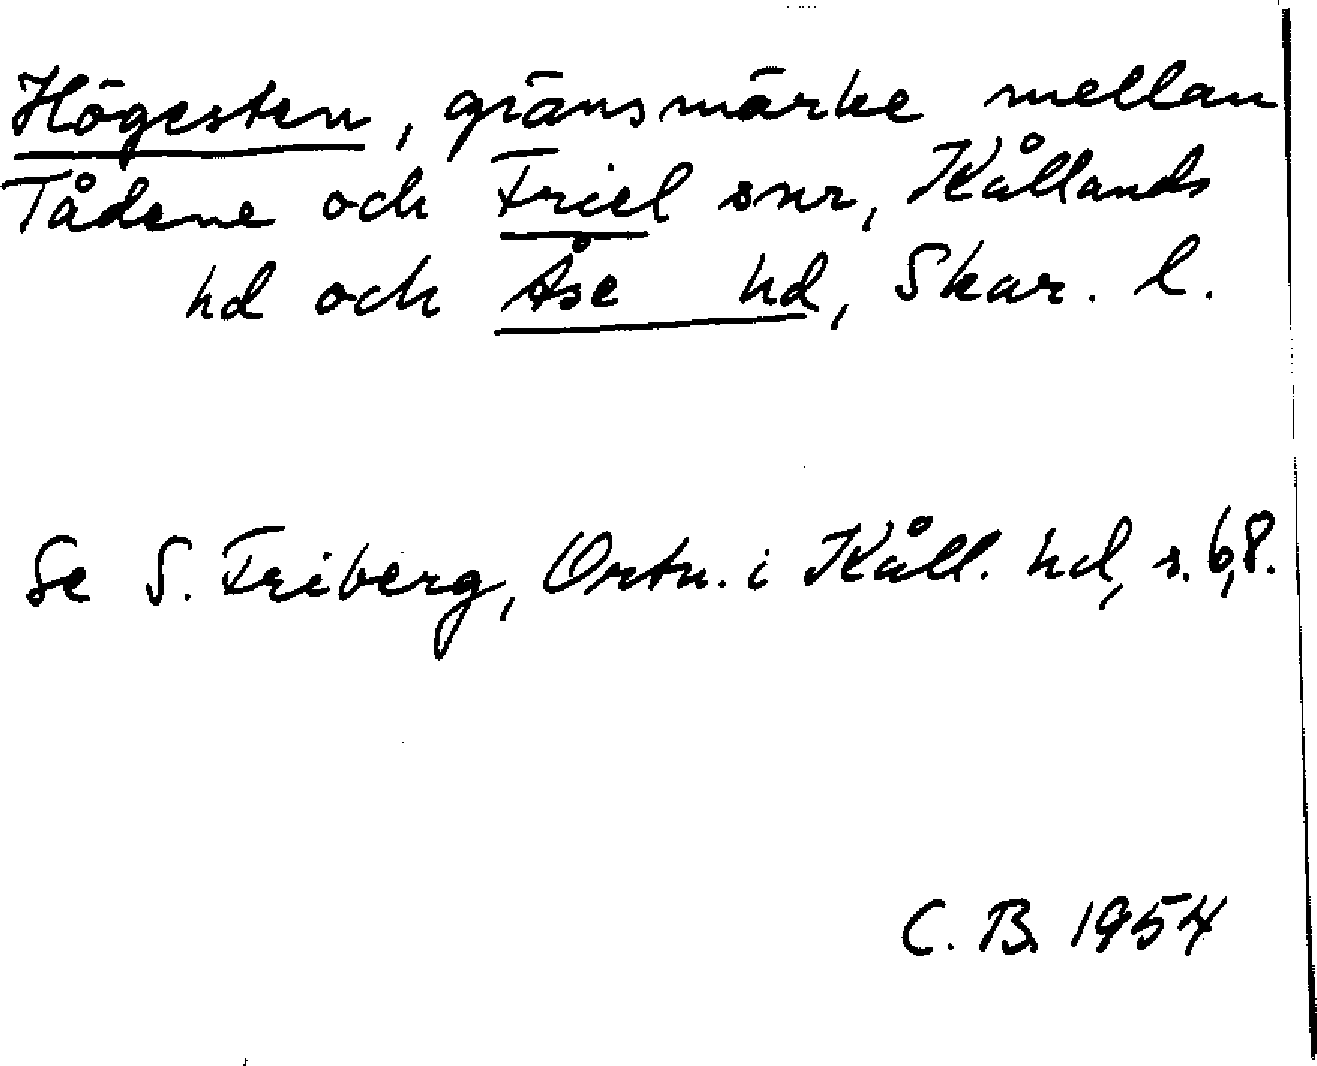 Högesten, gränsmärke mellan
Tådene och Friel snr, Kållands
hd och Åse hd, Skar. l.
Se S. Friberg, Ortn. i Kåll. hd, s. 6,8.
C. B. 1954